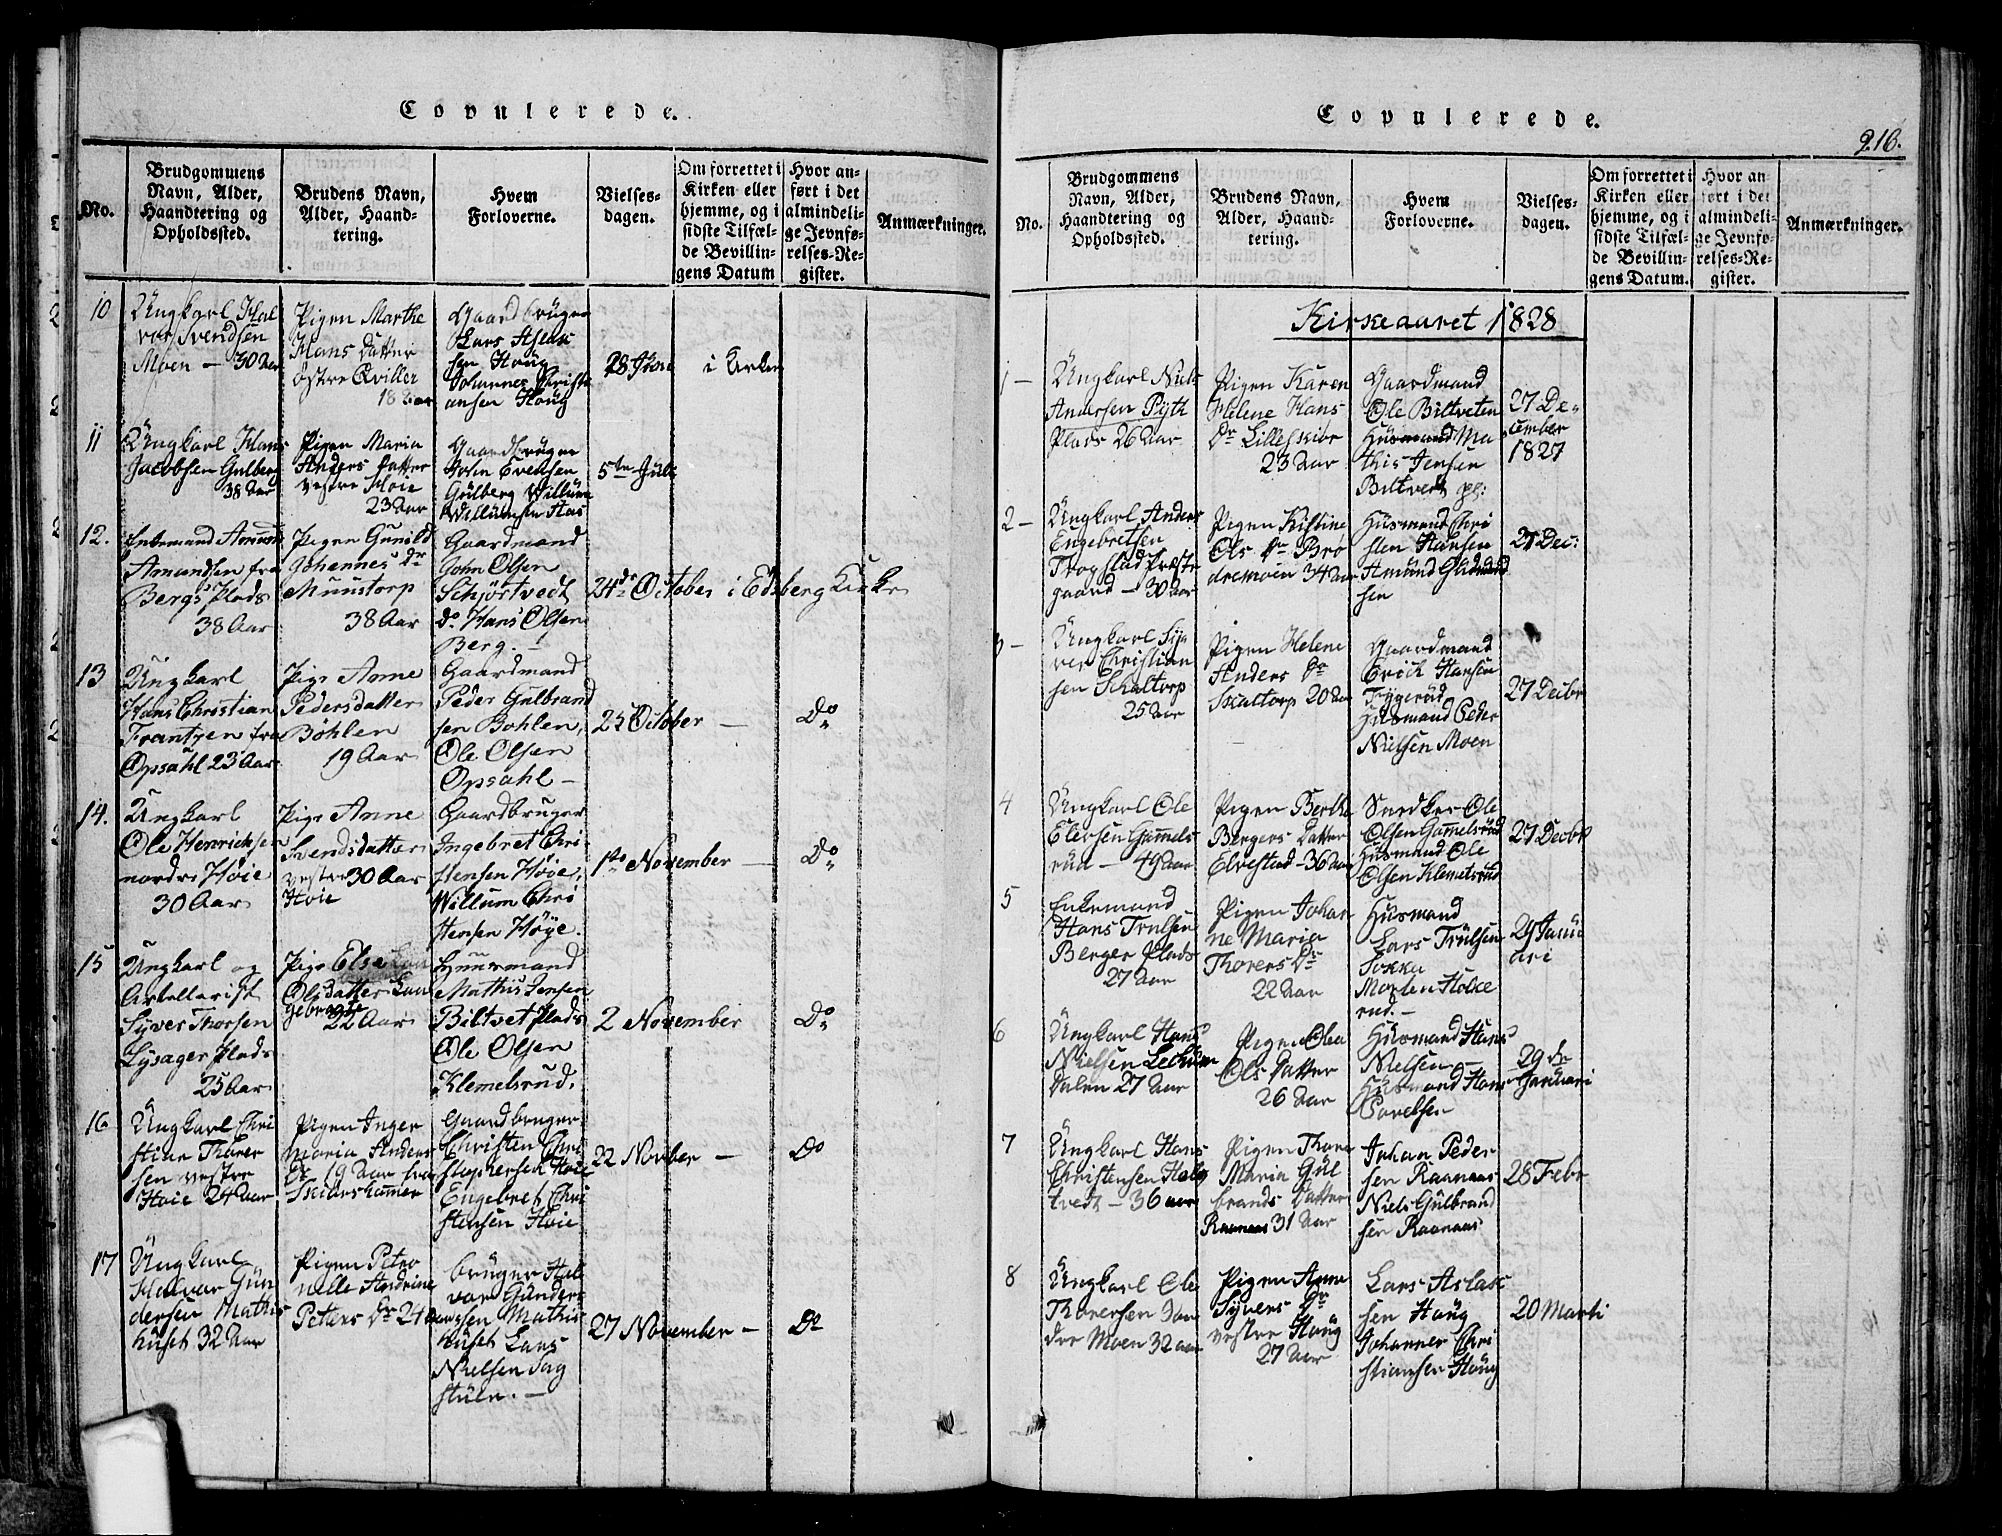 Copulerede.
No.
Brudgommens
Navn, Alder,
Haandtering og
Opholdssted.
Brudens Navn,
Alder, Haand-
tering.
Hvem
Forloverne.
Vielses-
dagen.
Om forrettet i
Kirken eller
hjemme, og i
sidste Tilfæl-
de Bevillin-
gens Datum
Hvor an-
ført i det
almindeli-
ge Jevnfø-
relses-Re-
gister.
Anmærkninger.
10
Ungkarl Hal
vor Svendsen
Moen — 30 Aar
Pigen Marthe
Hans Datter
østre Qviller
18 Aar
Gaardbruger
Lars Aslak
sen Houg
Johannes Christi
ansen Houg
28 Juni
i Kirken
11
Ungkarl Hans
Jacobsen Gulberg
38 Aar
Pigen Maria
Anders Datter
vestre Høie
23 Aar
Gaardbruger
John Evensen
Gulberg Willum
Willumsen
5te Juli
12.
Enkemand Amund
Amundsen fra
Bergs Plads
38 Aar
Pigen Gunild
Johannes Dr
Munstorp
38 Aar
Gaardmand
John Olsen
Schjørtvedt
do Hans Olsen
Berg. —
24de October i Edsberg Kirke
13
Ungkarl
Hans Christian
Frantzen fra
Opsahl 23 Aar
Pige Anne
Pedersdatter
Bøhlen
19 Aar
Gaardmand
Peder Gulbrand
sen Bohlen,
Ole Olsen
Opsahl —
25 October —
Do
14.
Ungkarl
Ole Henrichsen
nordre Høie
30 Aar
Pige Anne
Svendsdatter
vestre 30 Aar
Høie
Gaardbruger
Ingebret Chri
stensen Høie,
Willum Chri
stensen Høye.
1ste November —
Do
15
Ungkarl og
Artellerist
Syver Thorsen
Lysager Plads
25 Aar
Pige Else
Olsdatter
22 Aar
Huusmand
Mathis Jensen
Biltvet Plads
Ole Olsen
Klemelsrud.
2 November
Do
16
Ungkarl Chri
stian Thorer
sen vestre
Høie 24 Aar
Pigen Inger
Maria Anders
Dr 19 Aar fra
Gaardbruger
Christen Chri
stophersen Høie
Engebret Chri
stensen Høie
22 Novber —
Do
17
Ungkarl
Halvor Gun
dersen Mathis
huset 32 Aar
Pigen Petro
nelle Andrine
Petters Dr 24 Aar
bruger Hal
vor Gunders
sen Mathis
huset Lars
Nielsen Sag
stuen. —
27 November —
Do
Copulerede.
216.
No.
Brudgommens
Navn, Alder,
Haandtering og
Opholdssted.
Brudens Navn,
Alder, Haand-
tering.
Hvem
Forloverne.
Vielses-
dagen.
Om forrettet i
Kirken eller
hjemme, og i
sidste Tilfæl-
de Bevillin-
gens Datum.
Hvor an-
ført i det
almindeli-
ge Jevnfø-
relses-Re-
gister.
Anmærkninger.
Kirkeaaret 1828
1 —
Ungkarl Niels
Andersen Pyth
Plads 26 Aar
Pigen Karen
Helene Hans
Dr Lilleskibr
23 Aar
Gaardmand
Ole Biltveten
Husmand Ma
this Jensen
Biltvedt pl:
27 De-
cember
1827
2 —
Ungkarl Anders
Engebretsen
Trogstad Præste
gaard — 30 Aar
Pigen Kistine
Ols Dr Brø
dremoen 34 Aar
Husmand Chri
sten Hansen
Amund Gudmund
sen
27 Dec:
3 —
Ungkarl Sy
ver Christian
sen Skaltorp
25 Aar
Pigen Helene
Anders Dr
Skaltorp 20 Aar
Gaardmand
Erich Hansen
Tygerud
Husmand Peder
Nielsen Moen
27 Decbr
4
Ungkarl Ole
Elevsen Gamels
rud — 49 Aar
Pigen Berthe
Bergers Datter
Elvestad — 36 Aar
Snedker Ole
Olsen Gamelsrud
Husmand Ole
Olsen Klemetsrud
27 Decbr
5
Enkemand
Hans Trulsen
Berger Plads
27 Aar
Pigen Johan
ne Maria
Thorers Dr
22 Aar
Husmand
Lars Trulsen
Sokka
Morten Holke
rud. —
29 Janu
ari
6
Ungkarl Hans
Nielsen
Dalen 27 Aar
Pigen Olea
Ols Datter
26 Aar
Husmand Hans
Nielsen —
Husmand Hans
Povelsen
29 de
Januari
7
Ungkarl Hans
Christensen Haug
tvedt — 36 aar
Pigen Thore
Maria Gul
brands Datter
Raanaas 31 Aar
Johan Peder
sen Raanaas
Niels Gulbrand
sen Raanaas
28 Febr
8
Ungkarl Ole
Thorersen Søn
dre Moen 32 aar
Pigen Anne
Syvers Dr
vestre Houg
27 Aar
Lars Aslak
sen Houg
Johannes Chri
stiansen Houg
20 Marti